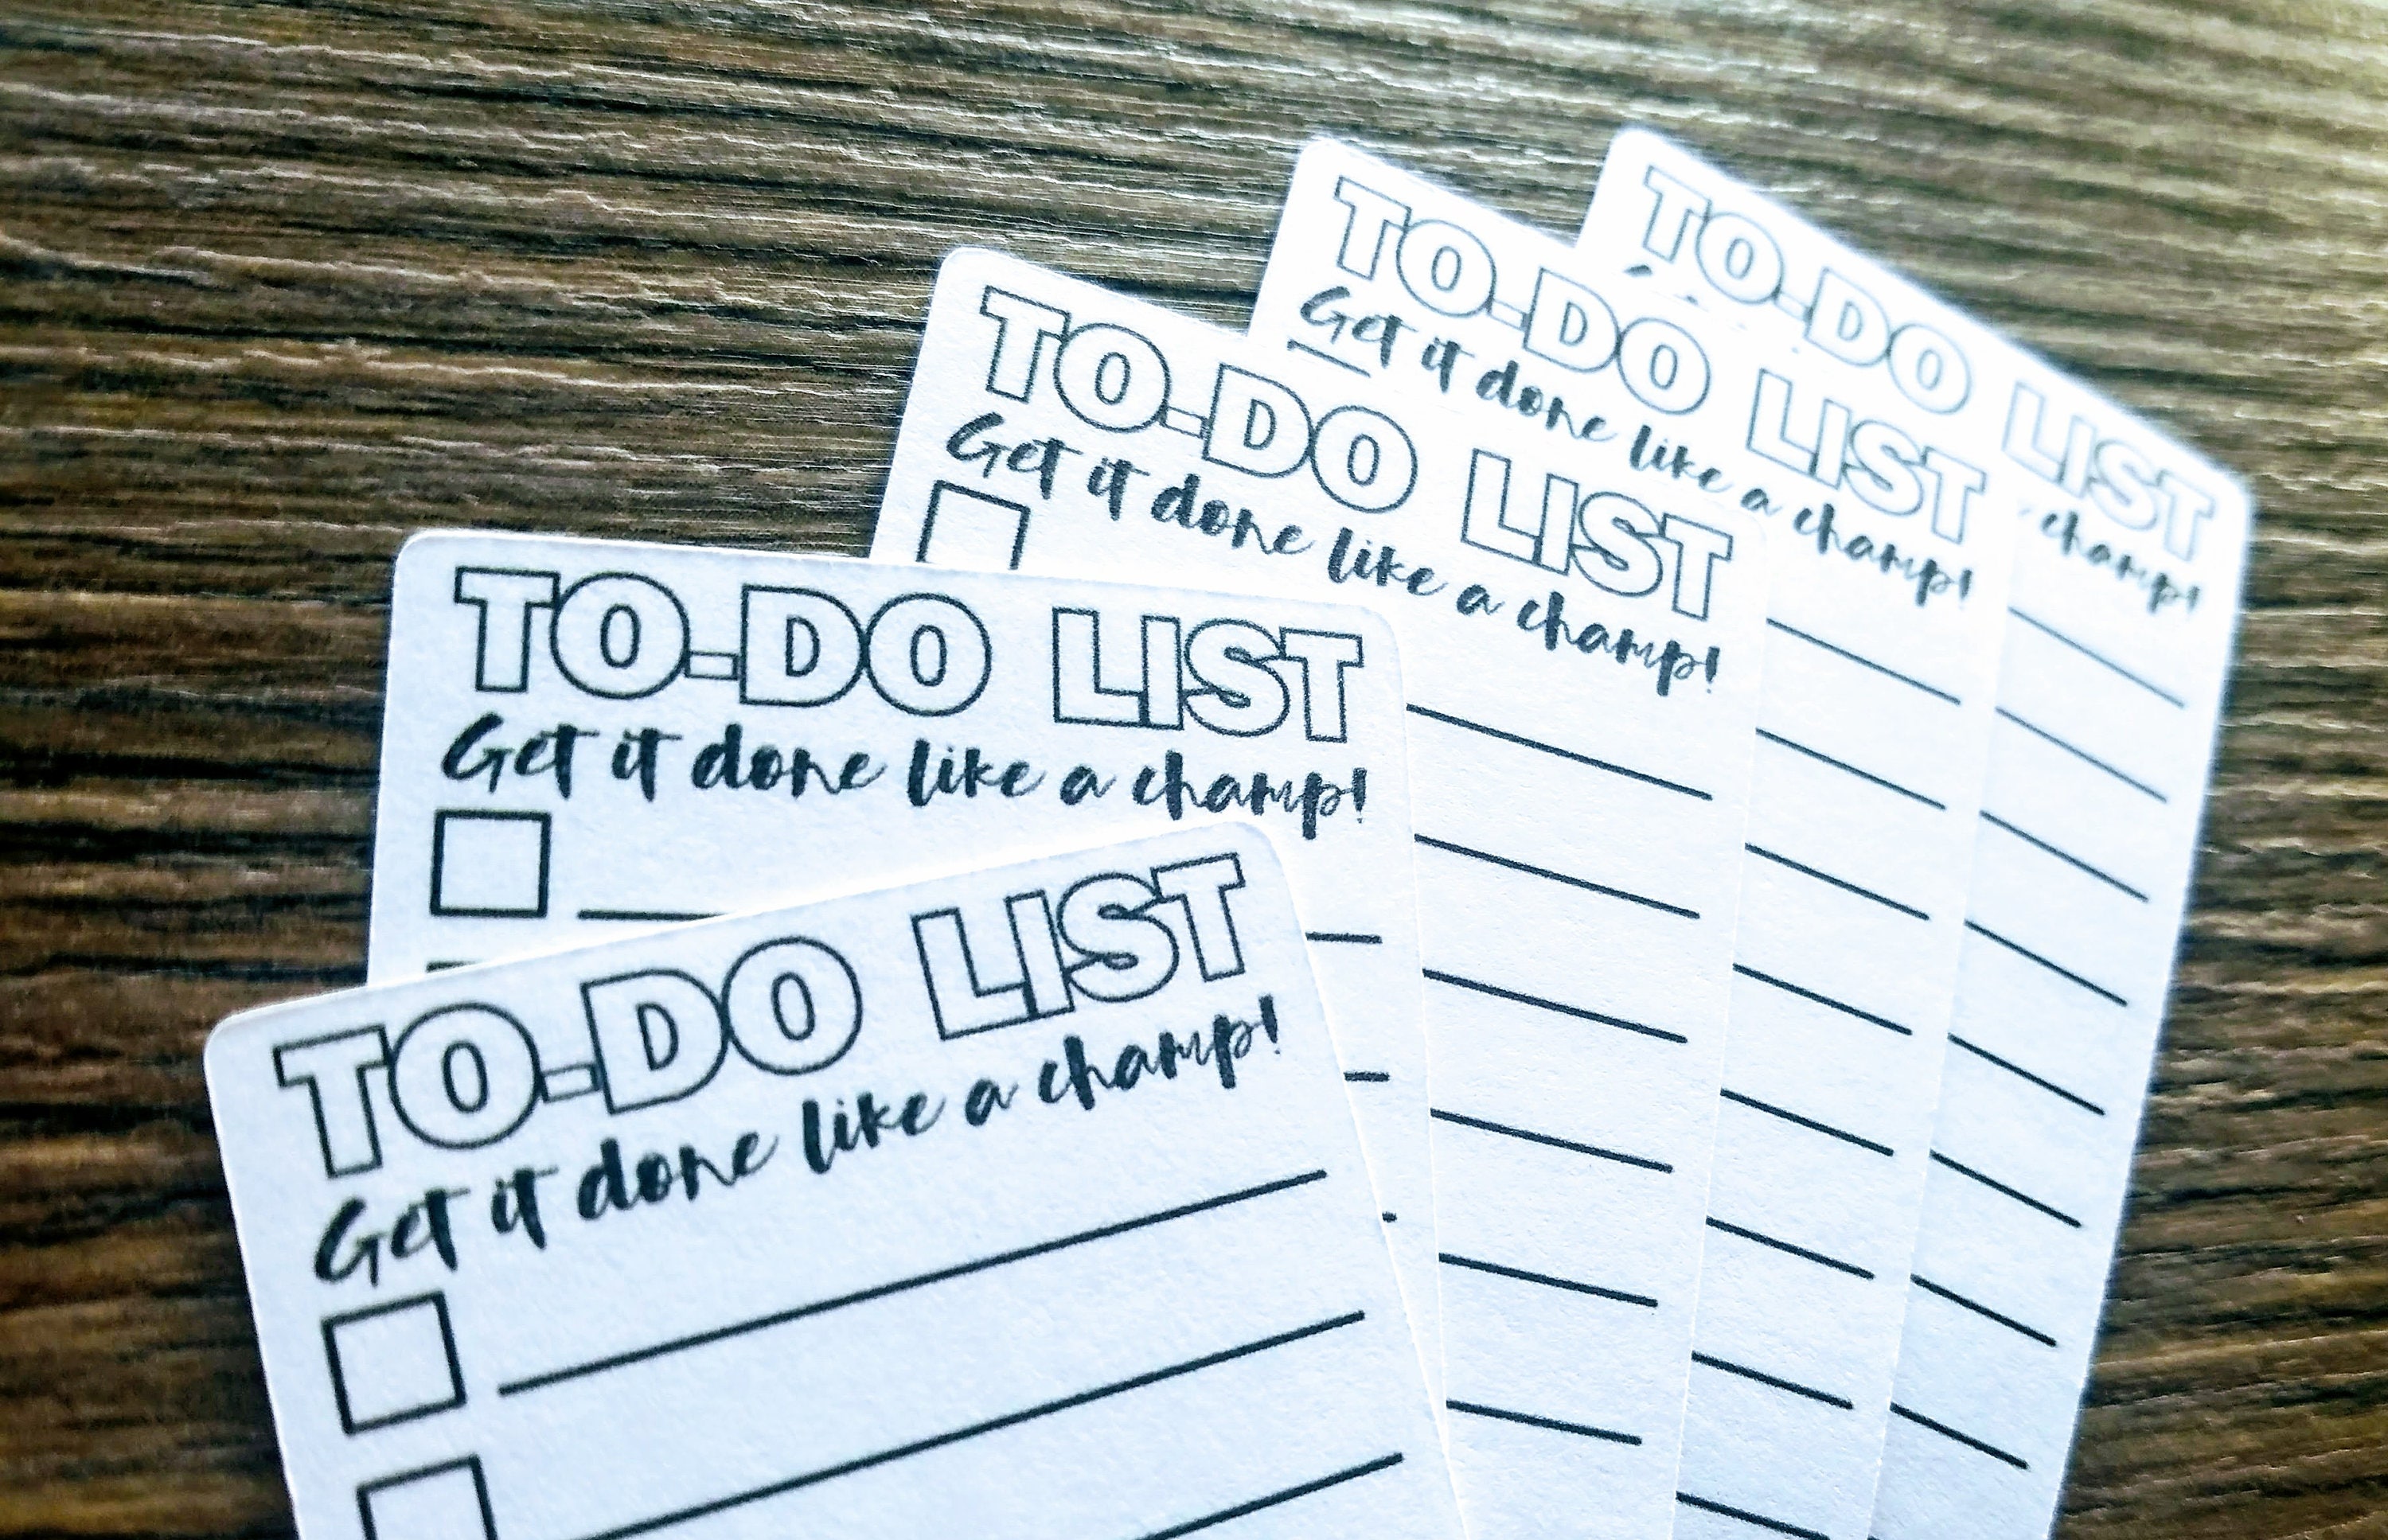 TO-DO LIST
champ!
TO-DO LIST
Get it done like a champ!
TO-DO LIST
Get it done like a champ!
TO-DO LIST
Get it done like a champ!
TO-DO LIST
Get it done like a champ!